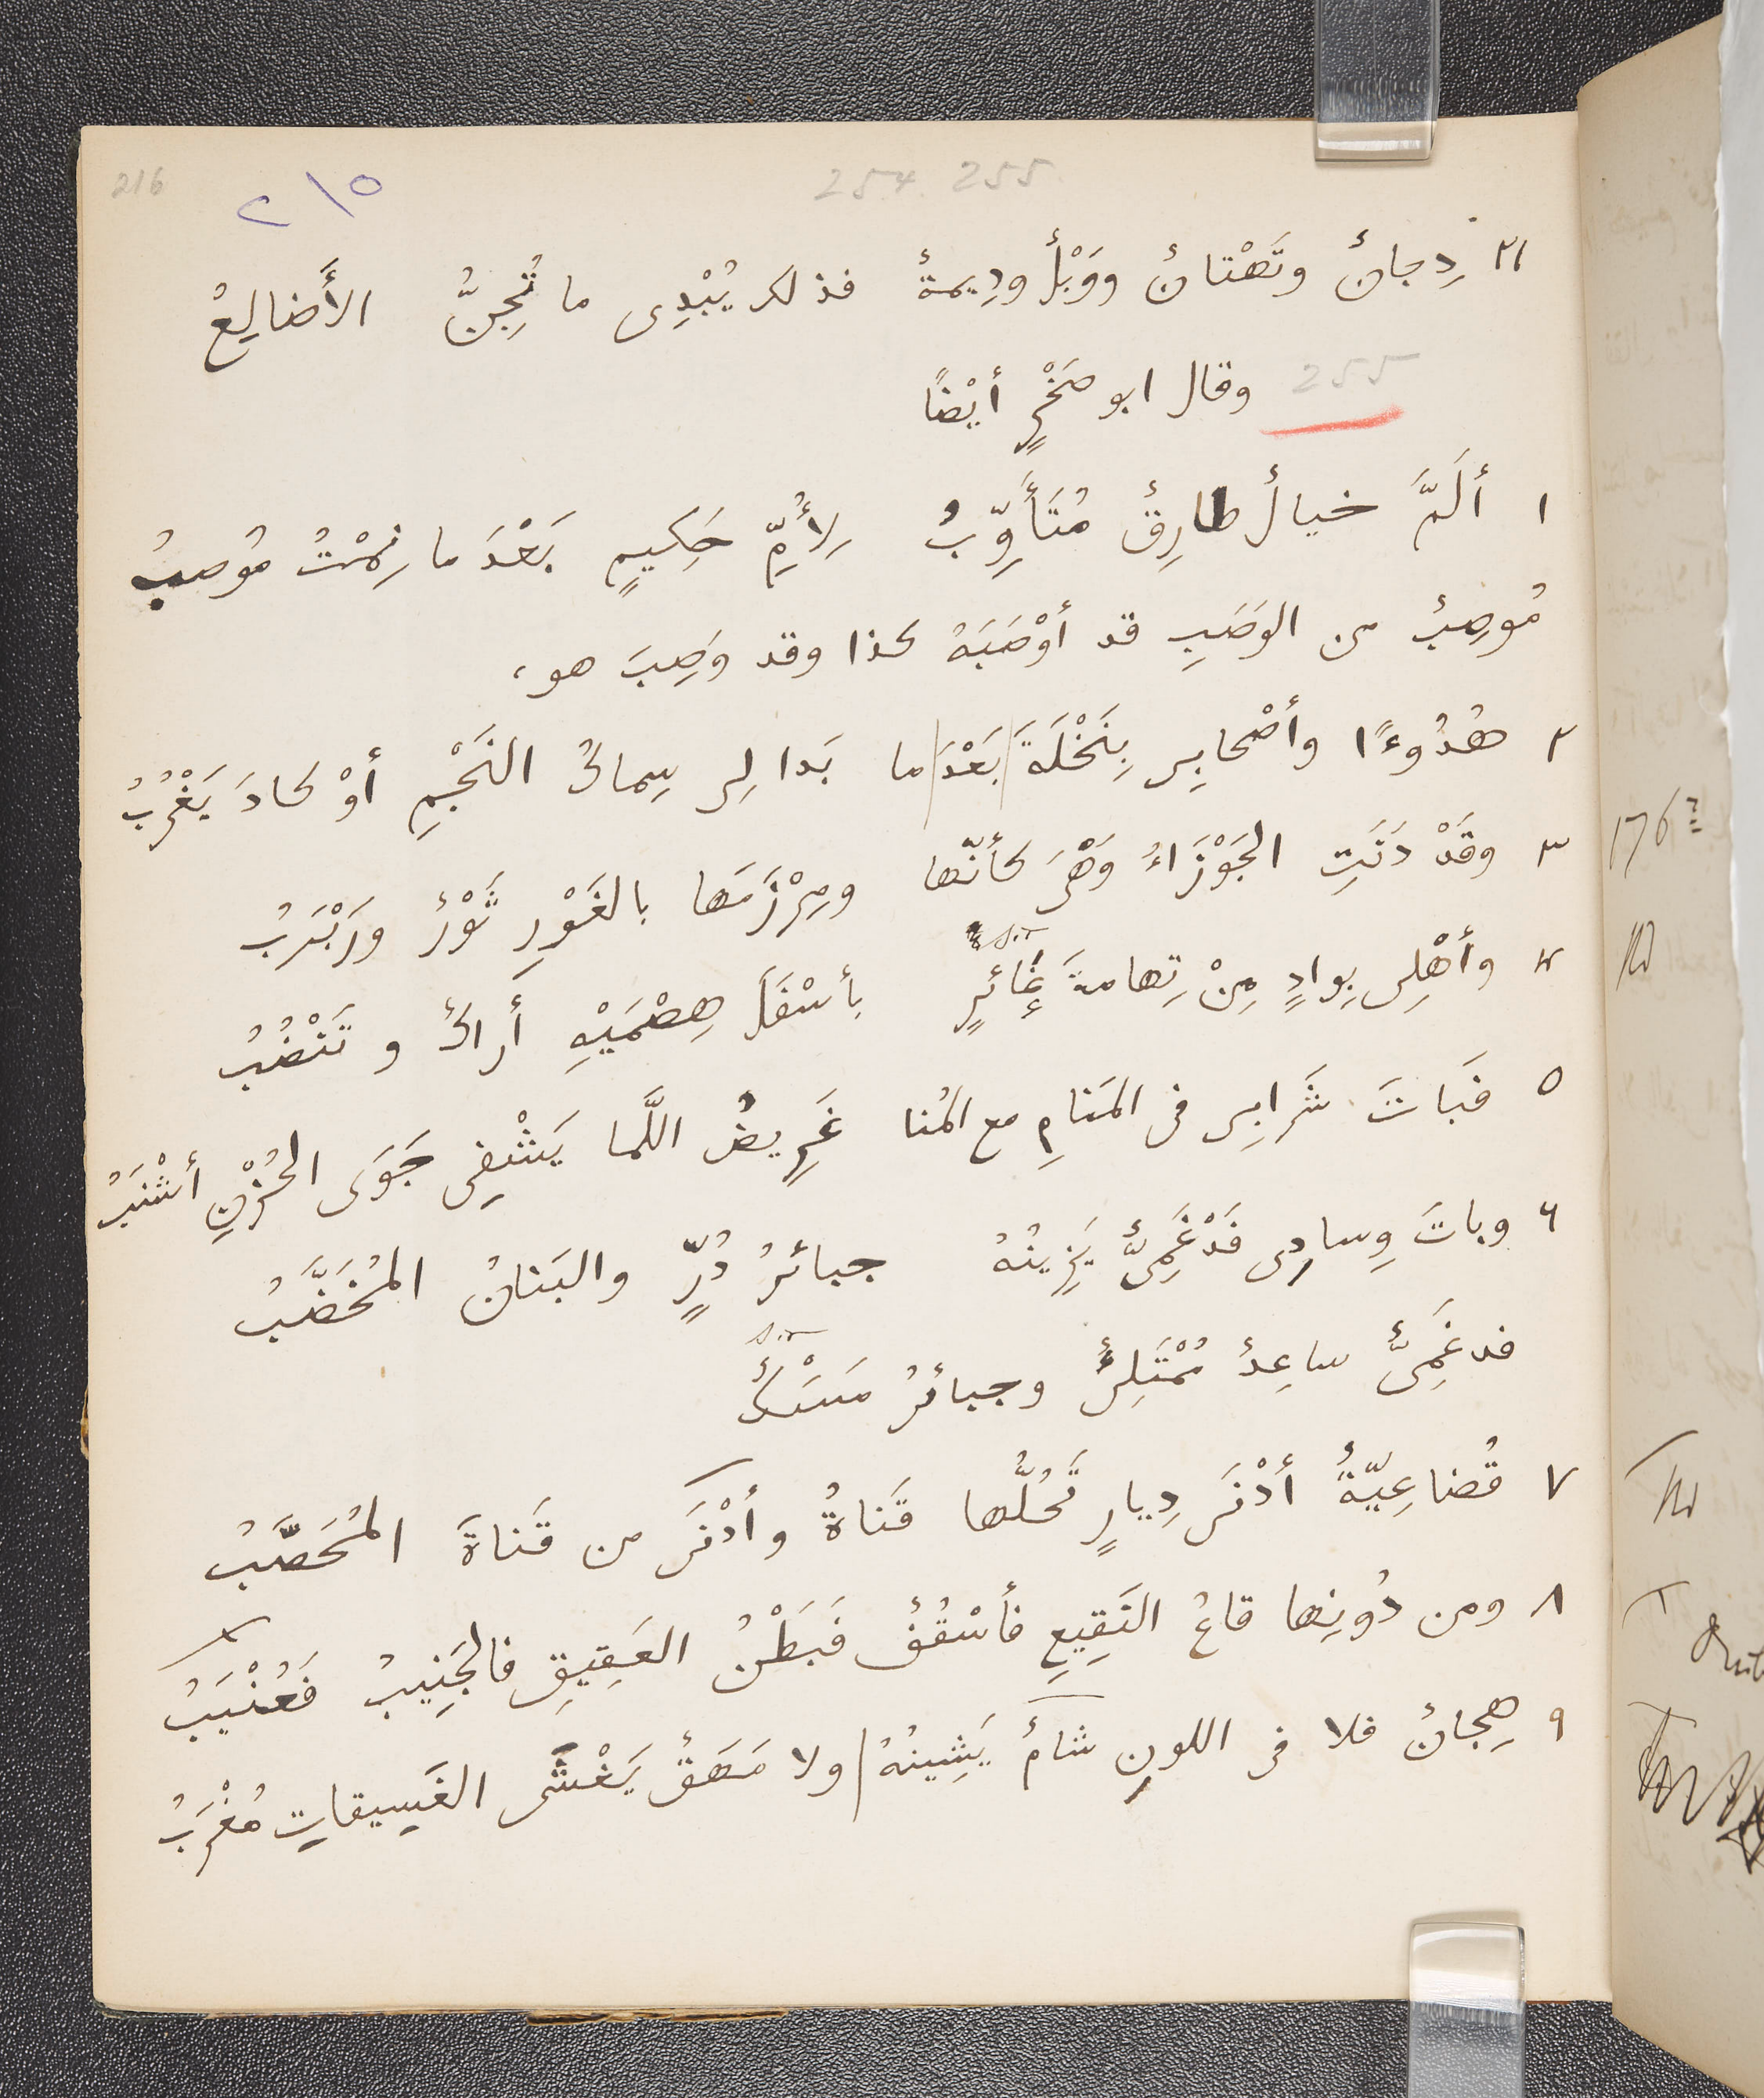 216
٢١٥
254. 255.
٢١ دِجانٌ وتَهْتانٌ ووَبْلٌ ودِيمةٌ فذلك يُبْدِى ما تُجِنُّ الأَضالِعُ
255 وقال ابو صَخْرٍ أيْضًا
١ أَلَمَّ خيالٌ طارِقٌ مُتَأَوِّبُ لِأُمِّ حَكِيمٍ بَعْدَ ما نِمْتُ مُوصِبُ
مُوصِبٌ من الوَصَبِ قد أَوْصَبَهُ كذا وقد وَصِبَ هو،
٢ هُدُوءًا وأَصْحابِى بِنَخْلَةَ بَعْدَ ما بَدا لِى سِماكُ النَجْمِ أوْ كادَ يَغْرُبُ
٣ وقَدْ دَنَتِ الجَوْزَاءُ وَهْىَ كأنّها ومِرْزَمَها بالغَوْرِ ثَوْرٌ ورَبْرَبُ
sic
٤ وأَهْلِى بِوادٍ مِنْ تِهامةَ غائرٍ بأَسْفَلَ هِضْمَيْهِ أَراكٌ و تَنْضُبُ
٥ فَبَاتَ شَرابِى فى المَنامِ مع المُنا غَرِيضُ اللَّما يَشْفِى جَوَى الحُزْنِ أَشْنَبُ
٦ وباتَ وِسادِى فَدْغَمِىٌّ يَزِينُهُ جبائرُ دُرٍّ والبَنانُ المُخَضَّبُ
sic
فدغَمِىٌّ ساعِدٌ مُمْتَلِىٌ وجبائرُ مَسَكٌ
٧ قُضاعِيّةٌ أدْنَى دِيارٍ تَحُلُّها قَناةُ وأَدْنَى من قَناةَ المُحَصَّبُ
٨ ومن دُونِها قاعُ النَقِيعِ فأَسْقُفٌ فَبَطْنُ العَقِيقِ فالجَنِيبُ فَعُنْبَبُ
٩ هِجانٌ فلا فى اللونِ شامٌ يَشِينُهُ ولا مَهَقٌ يَغْشَى الغَسِيقاتِ مُغْرَبُ
176